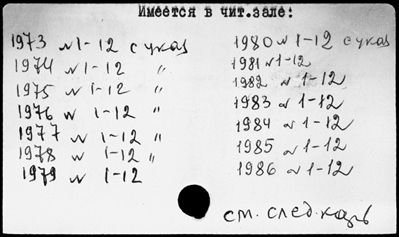 Имеется в чит.зале:
1973 N 1-12 с указ
1974 N 1-12 "
1975 N 1-12 "
1976 N 1-12 "
1977 N 1-12 "
1978 N 1-12 "
1979 N 1-12
1980 N 1-12 с указ
1981 N 1-12
1982 N 1-12
1983 N 1-12
1984 N 1-12
1985 N 1-12
1986 N 1-12
см. след.